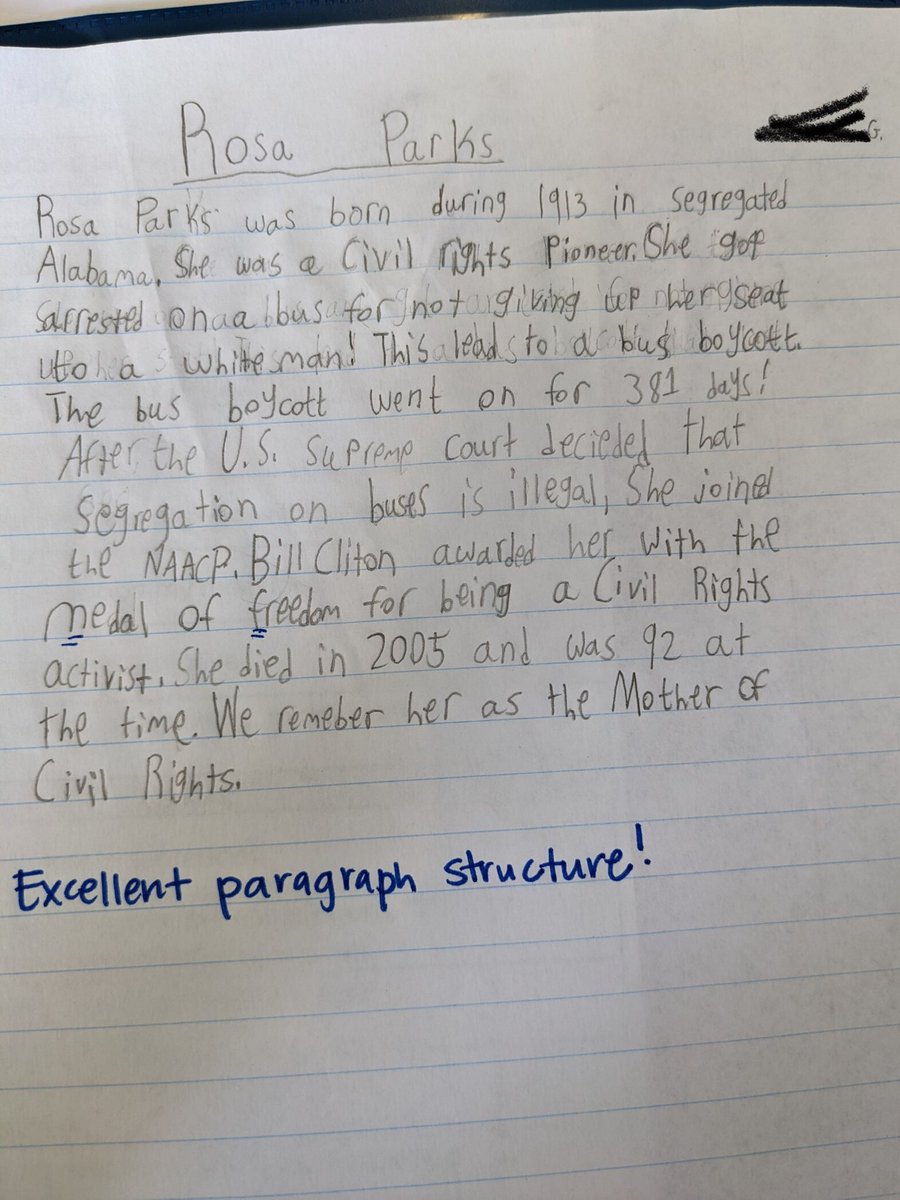 Rosa Parks
G.
Rosa Parks was born during 1913 in segregated
Alabama. She was a Civil rights Pioneer. She got
arrested on a bus for not giving up her seat
to a white man! This lead to a bus boycott.
The bus boycott went on for 381 days!
After the U.S. Supreme court decieded that
Segregation on buses is illegal, She joined
the NAACP. Bill Cliton awarded her with the
medal of freedom for being a Civil Rights
activist. She died in 2005 and was 92 at
the time. We remeber her as the Mother of
Civil Rights.
Excellent paragraph structure!